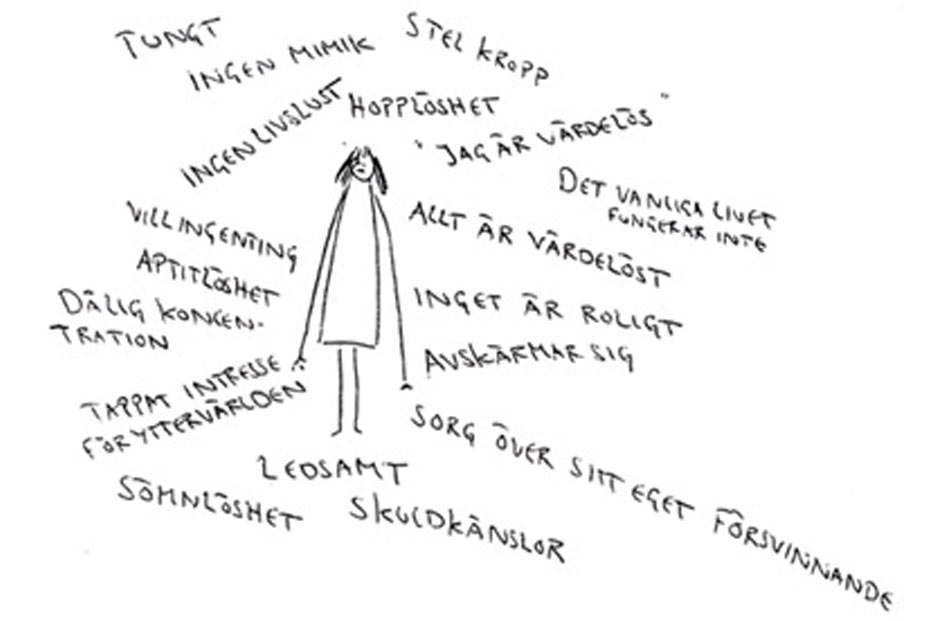 TUNGT
INGEN MIMIK
STEL KROPP
INGEN LIVSLUST
HOPPLÖSHET
"JAG ÄR VÄRDELÖS"
DET VANLIGA LIVET
FUNGERAR INTE
VILL INGENTING
ALLT ÄR VÄRDELÖST
APTITLÖSHET
DÅLIG KONCEN-
TRATION
INGET ÄR ROLIGT
AVSKÄRMAR SIG
TAPPAT INTRESSE
FÖR YTTERVÄRLDEN
SORG ÖVER SITT EGET FÖRSVINNANDE
LEDSAMT
SÖMNLÖSHET
SKULDKÄNSLOR